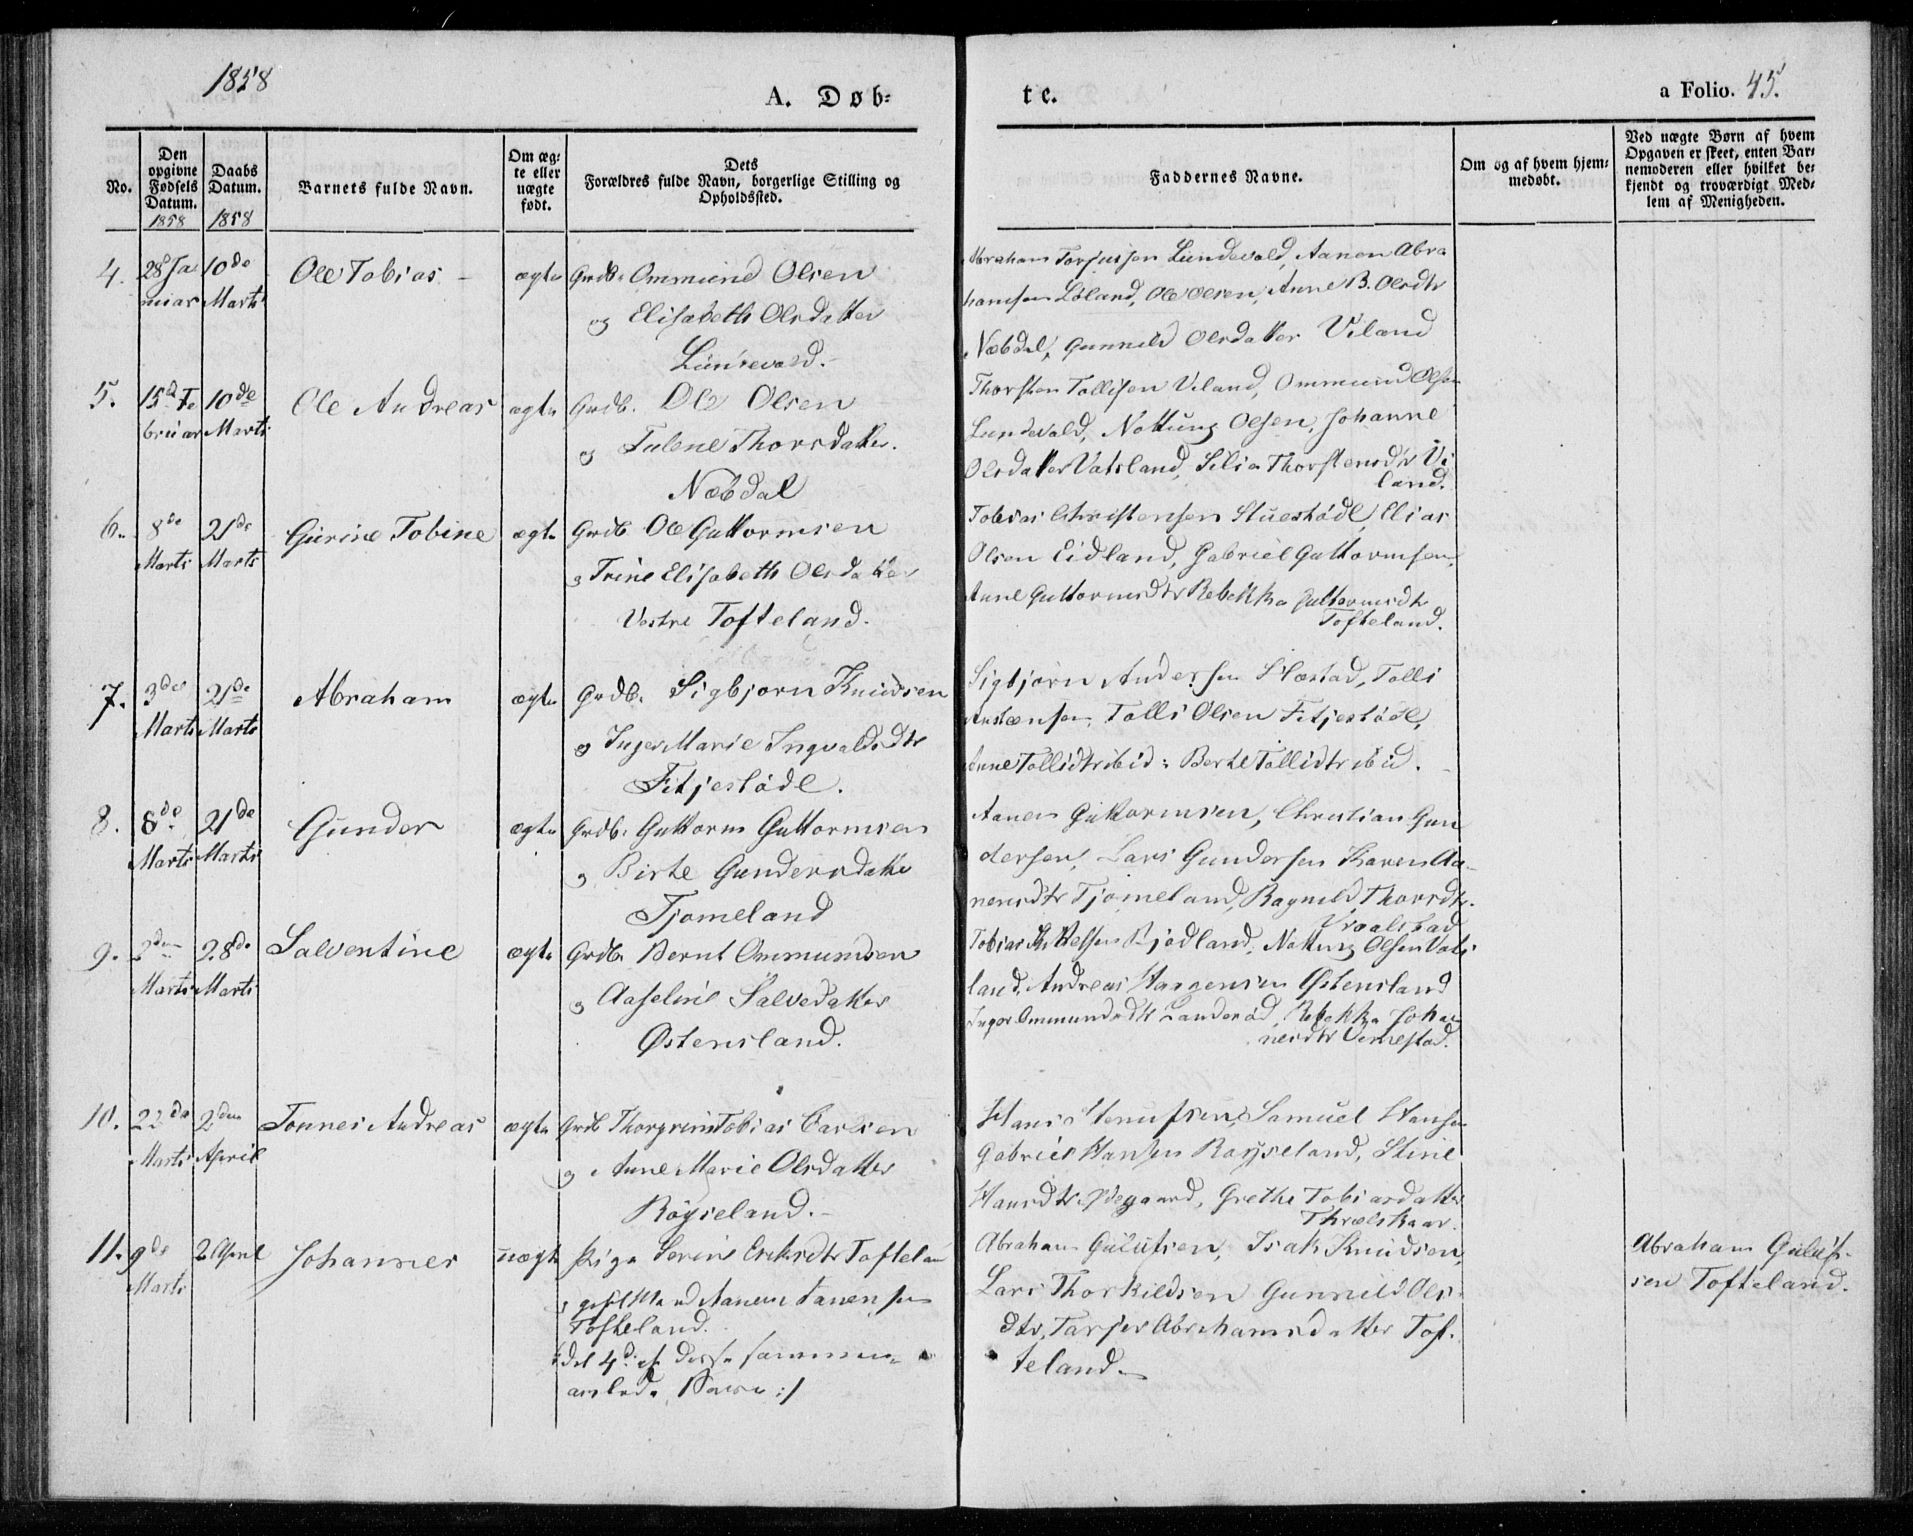 1858
A. Døb-
te.
a Folio. 45.
No.
Den opgivne Fødsels Datum.
1858
Daabs Datum.
1858
Barnets fulde Navn.
Om ægte eller uægte født.
Dets Forældres fulde Navn, borgerlige Stilling og Opholdssted.
Faddernes Navne.
Om og af hvem hjemmedøbt.
Ved uægte Børn af hvem Opgaven er skeet, enten Barnemoderen eller hvilket bekjendt og troværdigt Medlem af Menigheden.
4. 28 Ja 10de Ole Tobias ægte Grdb. Ommund Olsen
nuar Marts og Elisabeth Olsdatter
Lundevold.
Abraham Torjussen Lundevold, Aanen Abra
hamsen Løland, Ole Olsen, Anne B. Olsdtr
Næbdal, Gunnild Olsdatter Viland
5. 15d Fe 10de Ole Andreas ægte Grdb. Ole Olsen
bruar Marts og Tulene Thorsdatter.
Næbdal
Thorsten Tollisen Viland, Ommund Olsen
Lundevold, Nottung Olsen, Johanne
Olsdatter Vatsland, Silia Thorstensdtr Vi
land.
6. 8de 21de Gurine Tobine ægte Grdb. Ole Guttormsen
Marts Marts og Trine Elisabeth Olsdatter
Vestre Tofteland.
Tobias Christensen Stuestødl, Elias
Olsen Eidland, Gabriel Guttormsen,
Anne Guttormsdtr Rebekka Guttormsdtr
Tofteland.
7. 3de 21de Abraham ægte Grdb. Sigbjørn Knudsen
Marts Marts og Inger Marie Ingvaldsdtr
Fitjestødl.
Sigbjørn Andersen Hæstad, Tolli
Tolli Olsen Fitjestødl,
Anne Tollidtr ibid: Berte Tollidtr ibid.
8. 8de 21de Gunder ægte Grdb. Guttorm Guttormsen
Marts Marts og Birte Gundersdatter
Tjomeland
Aanen Guttormsen, Christian Gun
dersen, Lars Gundersen Karen Aa-
nensdtr Tjomeland, Ragnild Thorsdtr.
Vraalstad
9. 2den 28de Salventine ægte Grdb. Bernt Ommundsen
Marts Marts og Aaseline Salvedatter
Østensland.
Tobias Rjodland, Nottung Olsen Vats
land, Andreas Haagensen Østensland
Inger Ommundsdtr Landerød, Rebekka Johan
nesdtr Vemestad.
10. 22de 2den Tønnes Andreas ægte Grdb Thorgrim Tobias Carlsen
Marts April og Anne Marie Olsdatter
Røyseland.
Hans Samuel Hansen
Gabriel Hansen Røyseland, Stine
Hansdtr Ødegaard, Grethe Tobiasdatter
Thrælskaar.
11. 9de 2 April Johannes uægte Pige Serine Eriksdtr Toftelan
Marts og gift Mand Aanen Aanensen
Tofteland.
det 4de af disse sammen
avlede Børn :/
Abraham Gulufsen, Isak Knudsen,
Lars Thorkildsen Gunnild Ols-
dtr, Tarjer Abrahamsdatter Tof-
teland.
Abraham Guluf-
sen Tofteland.